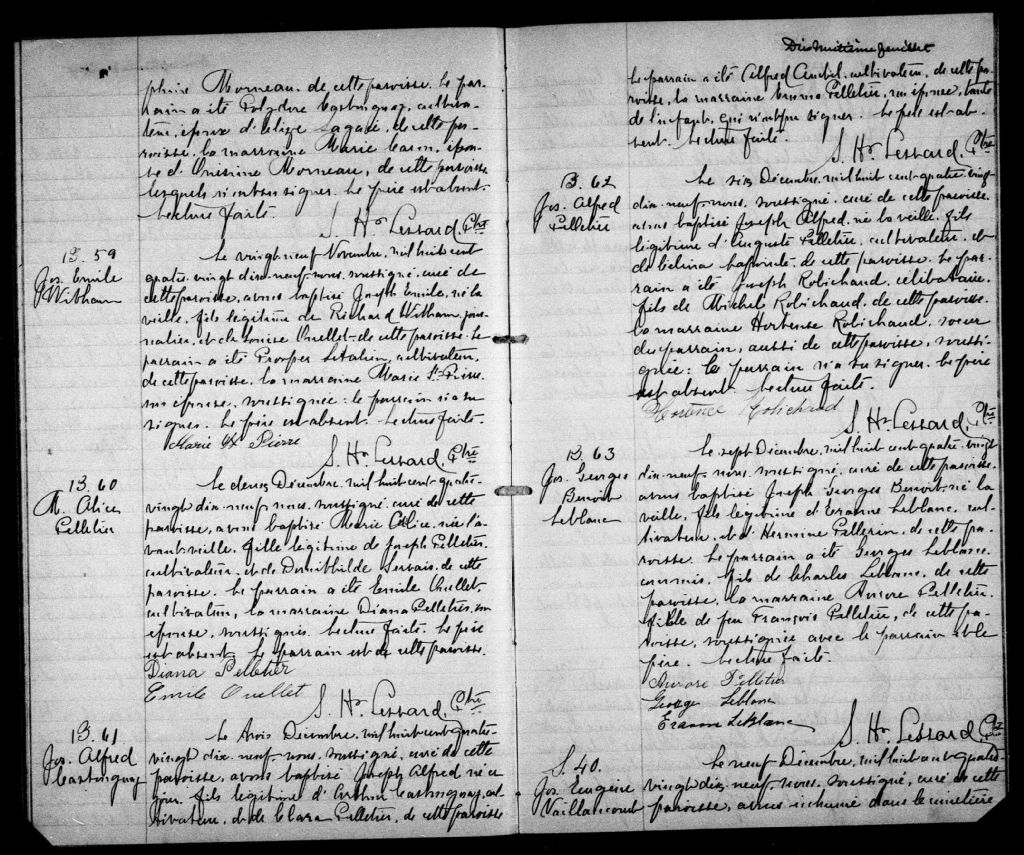 phire Morneau, de cette paroisse. Le par-
rain a été Polydore Castonguay, cultiva-
teur, époux d'Elize Lagacé, de cette pa-
roisse, la marraine Marie Caron, épou-
se d'Onésime Morneau, de cette paroisse
lesquels n'ont su signer. Le père est absent.
Lecture faite.
S. Hr. Lessard, Ptre
B. 59
Jos. Emile
Witham
Le vingt neuf Novembre, mil huit cent
quatre-vingt dix-neuf, nous, soussigné, curé de
cette paroisse, avons baptisé Joseph Emile, né la
veille, fils légitime de Richard Witham, jour-
nalier, et de Louise Ouellet de cette paroisse. Le
parrain a été Prosper Litalien, cultivateur,
de cette paroisse, la marraine Marie St-Pierre,
son épouse, soussignée: le parrain n'a su
signer. Le père est absent. Lecture faite.
Marie St Pierre
S. Hr. Lessard, Ptre
B. 60
M. Alice
Pelletier
Le deux Décembre, mil huit cent quatre-
vingt dix-neuf, nous, soussigné, curé de cette
paroisse, avons baptisé Marie Alice, née l'a-
vant-veille, fille légitime de Joseph Pelletier,
cultivateur, et de Domithilde Gervais, de cette
paroisse. Le parrain a été Emile Ouellet,
cultivateur, la marraine Diana Pelletier, son
épouse, soussignés. Lecture faite. Le père
est absent. Le parrain est de cette paroisse.
Diana Pelletier
Emile Ouellet
S. Hr. Lessard, Ptre
B. 61
Jos. Alfred
Castonguay
Le trois Décembre, mil huit cent quatre-
vingt dix-neuf, nous, soussigné, curé de cette
paroisse, avons baptisé Joseph Alfred né ce
jour, fils légitime d'Arthur Castonguay, cul-
tivateur, et de Clara Pelletier, de cette paroisse
Dix-huitième feuillet
Le parrain a été Alfred, cultivateur, de cette pa-
roisse, la marraine Emma Pelletier, son épouse, tante
de l'enfant, qui n'ont su signer. Le père est ab-
sent. Lecture faite.
S. Hr. Lessard, Ptre
B. 62
Jos. Alfred
Pelletier
Le six Décembre, mil huit cent quatre-vingt
dix-neuf, nous, soussigné, curé de cette paroisse,
avons baptisé Joseph Alfred, né la veille, fils
légitime d'Auguste Pelletier, cultivateur, et
de Célina, de cette paroisse. Le par-
rain a été Joseph Robichaud, célibataire,
fils de Michel Robichaud, de cette paroisse,
la marraine Hortense Robichaud, soeur
du parrain, aussi de cette paroisse, soussi-
gnée: le parrain n'a su signer. Le père
est absent. Lecture faite.
Hortence Robichaud
S. Hr. Lessard, Ptre
B. 63
Jos. Georges
Benoit
Leblanc
Le sept Décembre, mil huit cent quatre-vingt
dix-neuf, nous, soussigné, curé de cette paroisse,
avons baptisé Joseph Georges Benoit, né la
veille, fils légitime d'Eranne Leblanc, cul-
tivateur, et d'Hermine Pellerin, de cette pa-
roisse. Le parrain a été Georges Leblanc,
commis, fils de Charles Leblanc, de cette
paroisse, la marraine Aurore Pelletier,
fille de feu François Pelletier, de cette pa-
roisse, soussignée avec le parrain et le
père. Lecture faite.
Aurore Pelletier
George Leblanc
Eranne Leblanc
S. Hr. Lessard, Ptre
S. 40.
Jos. Eugène
Vaillancourt
Le neuf Décembre, mil huit cent quatre-
vingt dix-neuf, nous, soussigné, curé de cette
paroisse, avons inhumé dans le cimetière